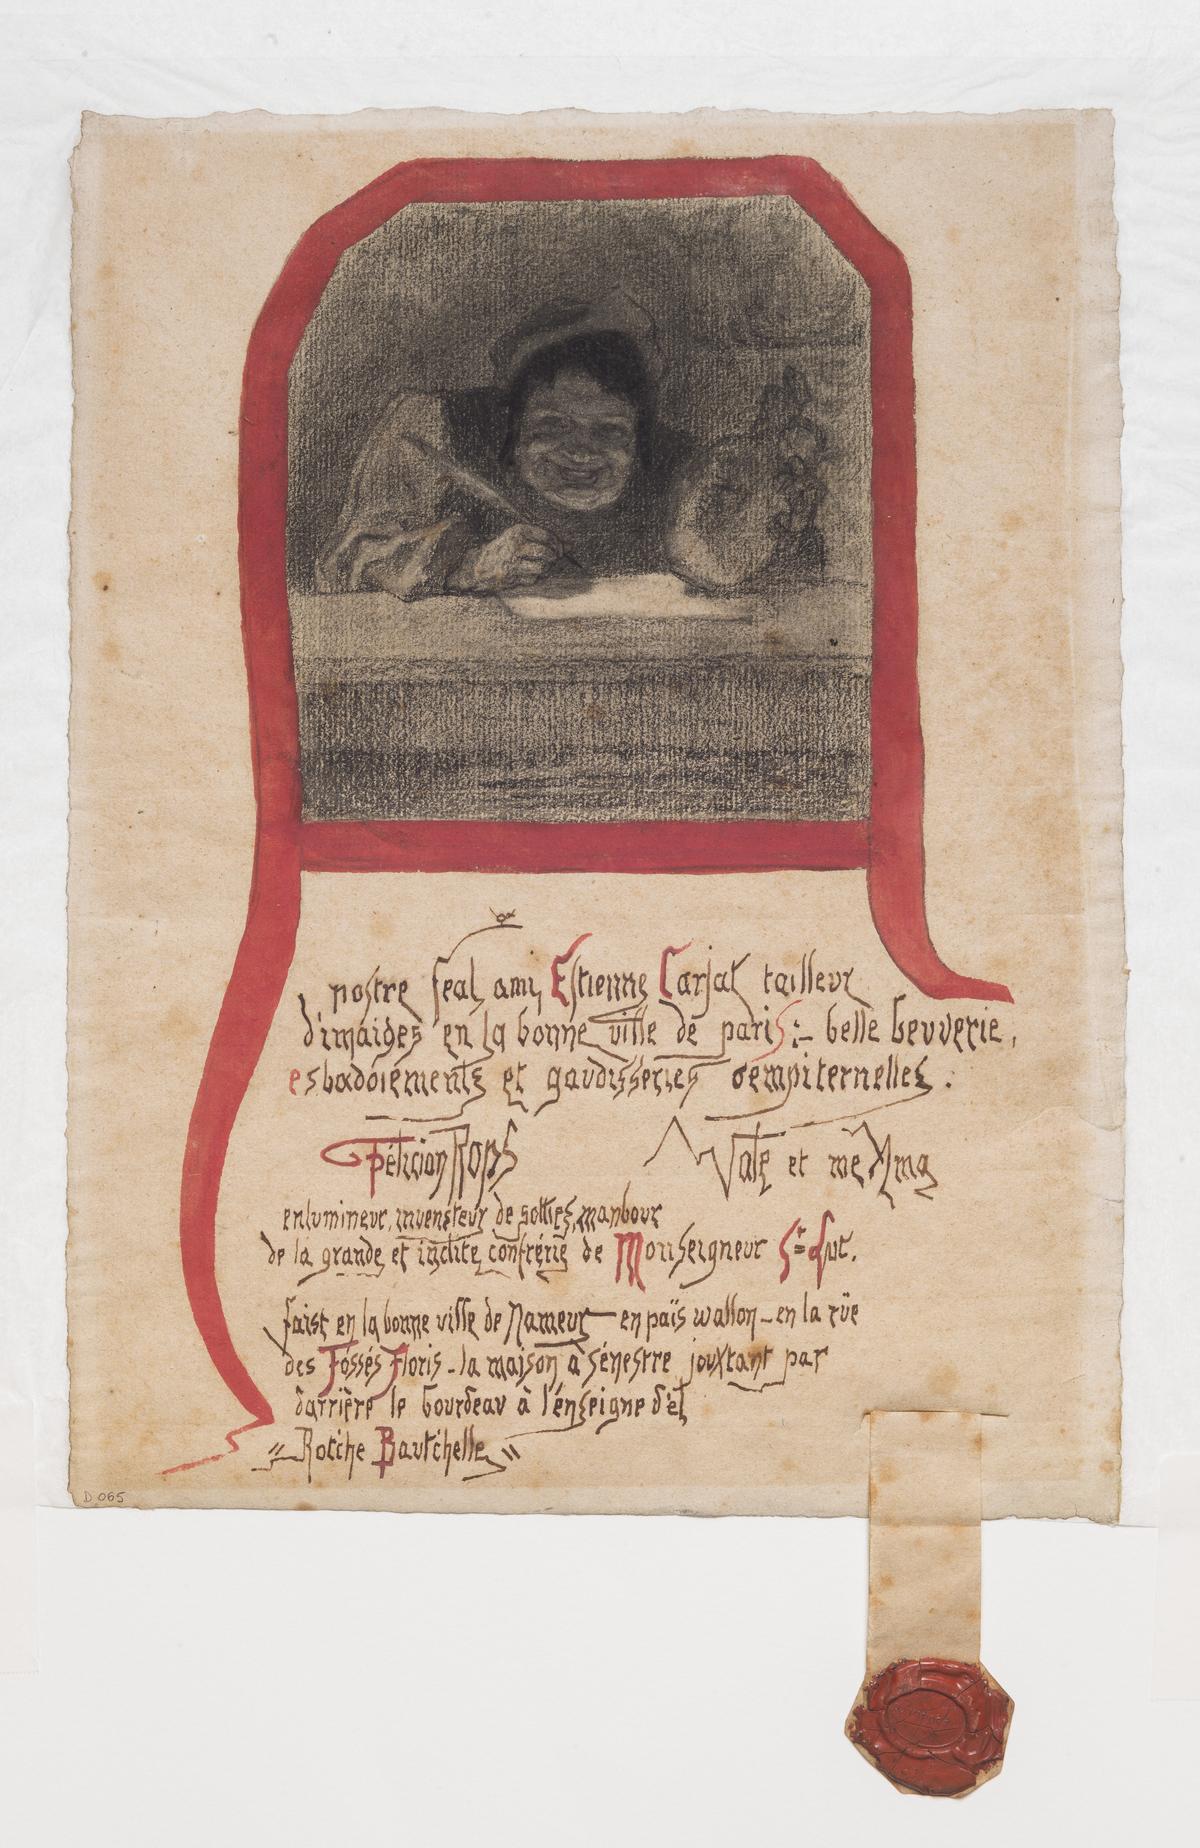 A nostre féal amy Estienne Carjat tailleur
d'imaiges en la bonne ville de paris :- belle beuverie,
esbadoiements et gaudisseries sempiternelles .
Félicion Rops
Vale et me Ama
enlumineur, inventeur de sotties, manbour
de la grande et inclite confrérie de Monseigneur St Lut.
faist en la bonne ville de Nameur - en païs wallon - en la rüe
des Fossés Floris - la maison à sénestre jouxtant par
darrière le bourdeau à l'énseigne d'él
" Rotche Bautchelle "
D 065